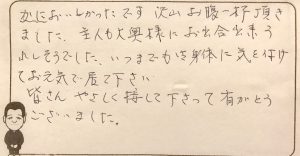 大においしかったです 沢山お腹一杯頂き
ました。主人も大奥様にお出合出来う
れしそうでした。いつまでも身体に気を付け
てお元気で居て下さい
皆さん やさしく接して下さって有がとう
ございました。